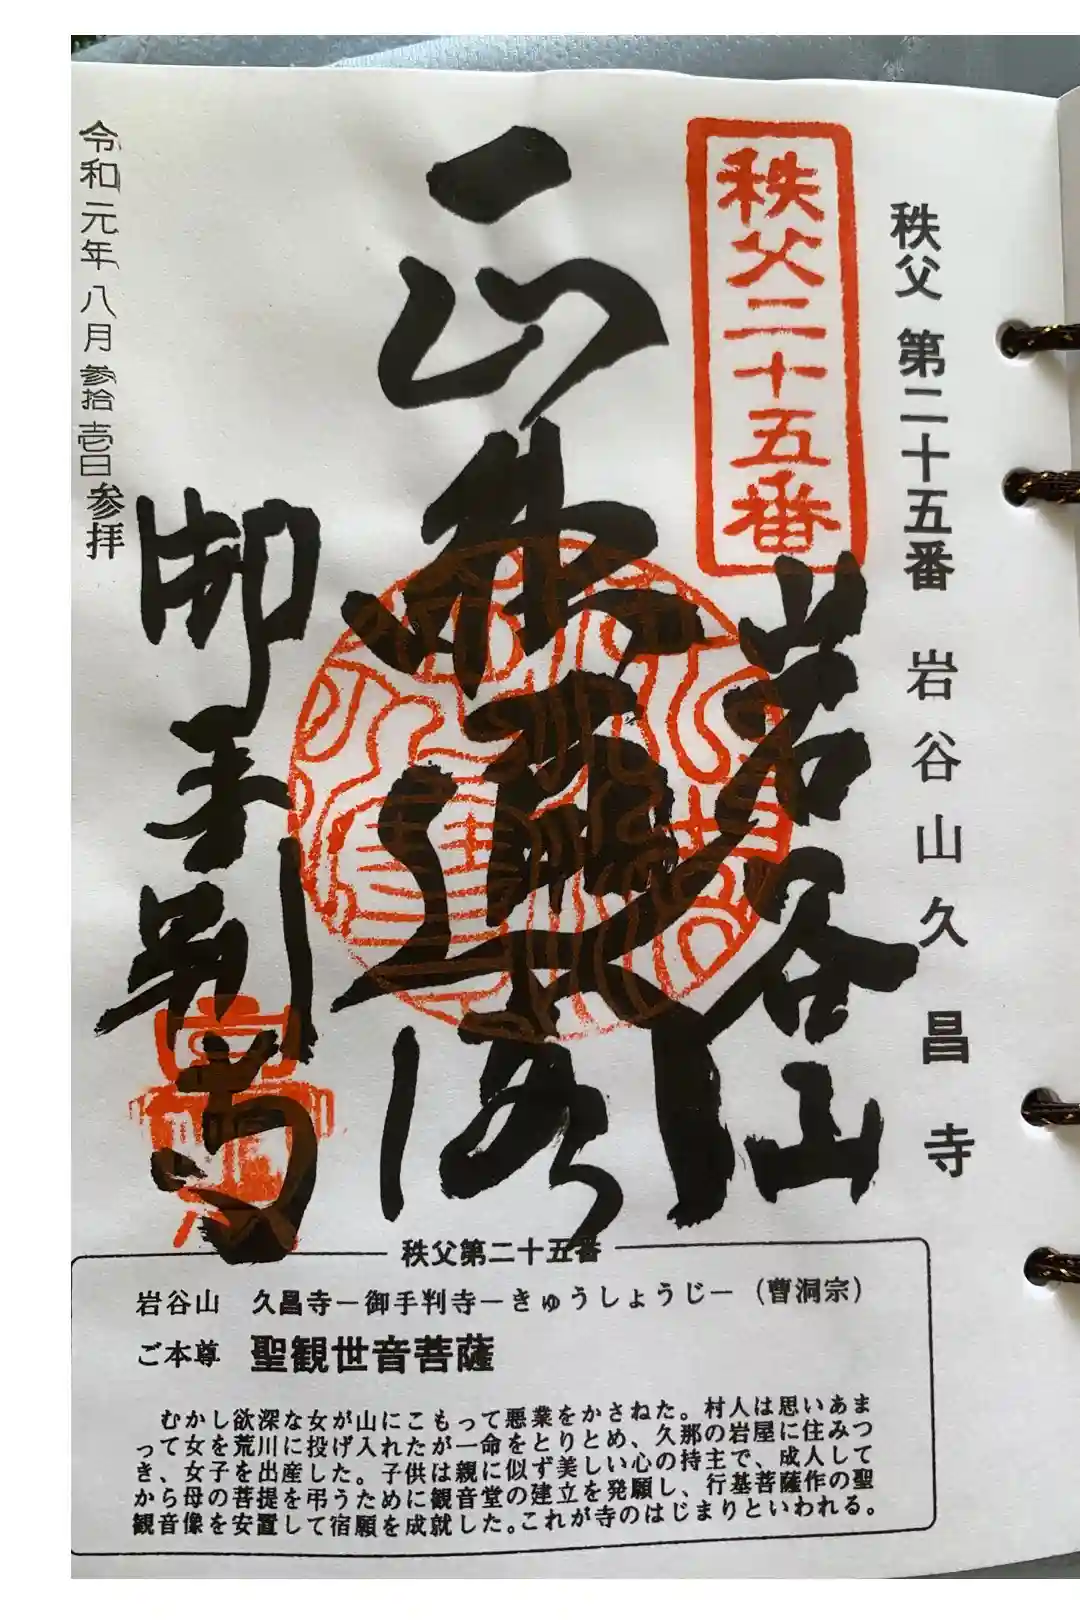 秩父 第二十五番 岩谷山久昌寺
秩父二十五番
岩谷山
正
御手判寺
令和元年八月参拾壱日参拝
秩父第二十五番
岩谷山 久昌寺－御手判寺－きゅうしょうじ－（曹洞宗）
ご本尊 聖観世音菩薩
むかし欲深な女が山にこもって悪業をかさねた。村人は思いあま
って女を荒川に投げ入れたが一命をとりとめ、久那の岩屋に住みつ
き、女子を出産した。子供は親に似ず美しい心の持主で、成人して
から母の菩提を弔うために観音堂の建立を発願し、行基菩薩作の聖
観音像を安置して宿願を成就した。これが寺のはじまりといわれる。